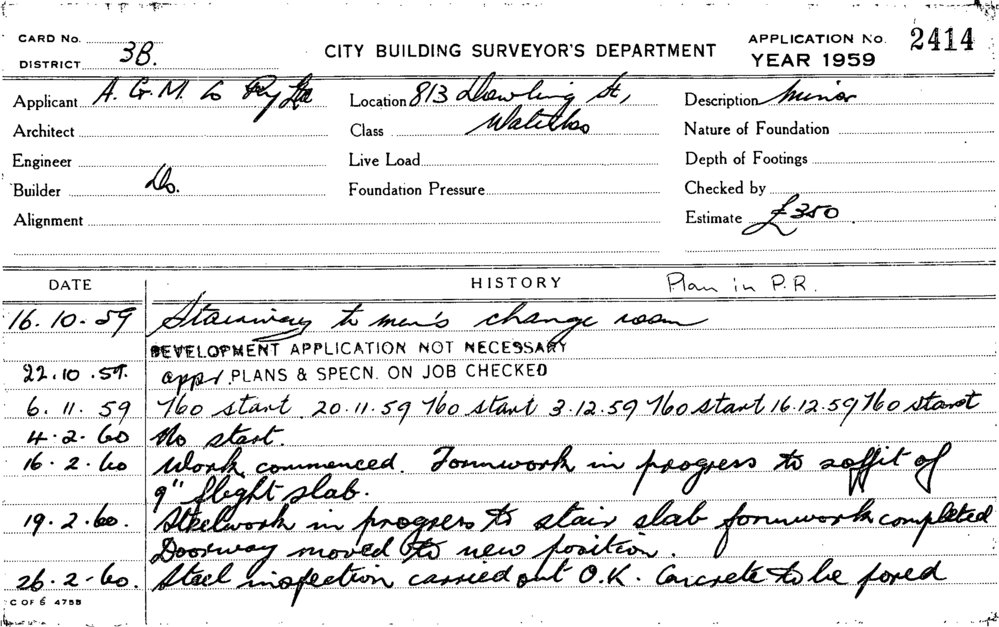 CARD No.
DISTRICT 3B.
CITY BUILDING SURVEYOR'S DEPARTMENT
APPLICATION No. 2414
YEAR 1959
Applicant A. G. M. Co Pty Ltd Location 813 Dowling St, Description Minor
Architect Class Waterloo Nature of Foundation
Engineer Live Load Depth of Footings
Builder Do. Foundation Pressure Checked by
Alignment Estimate £350.
DATE HISTORY Plan in P.R.
16.10.59 Stairway to men's change room
DEVELOPMENT APPLICATION NOT NECESSARY
22.10.59. appr. PLANS & SPECN. ON JOB CHECKED
6.11.59 No start. 20.11.59 No start 3.12.59 No start 16.12.59 No start
4.2.60 No start.
16.2.60 Work commenced. Formwork in progress to soffit of
9" flight slab.
19.2.60. Steelwork in progress to stair slab formwork completed
Doorway moved to new position.
26.2.60. Steel inspection carried out O.K. Concrete to be pored
C OF S 475B